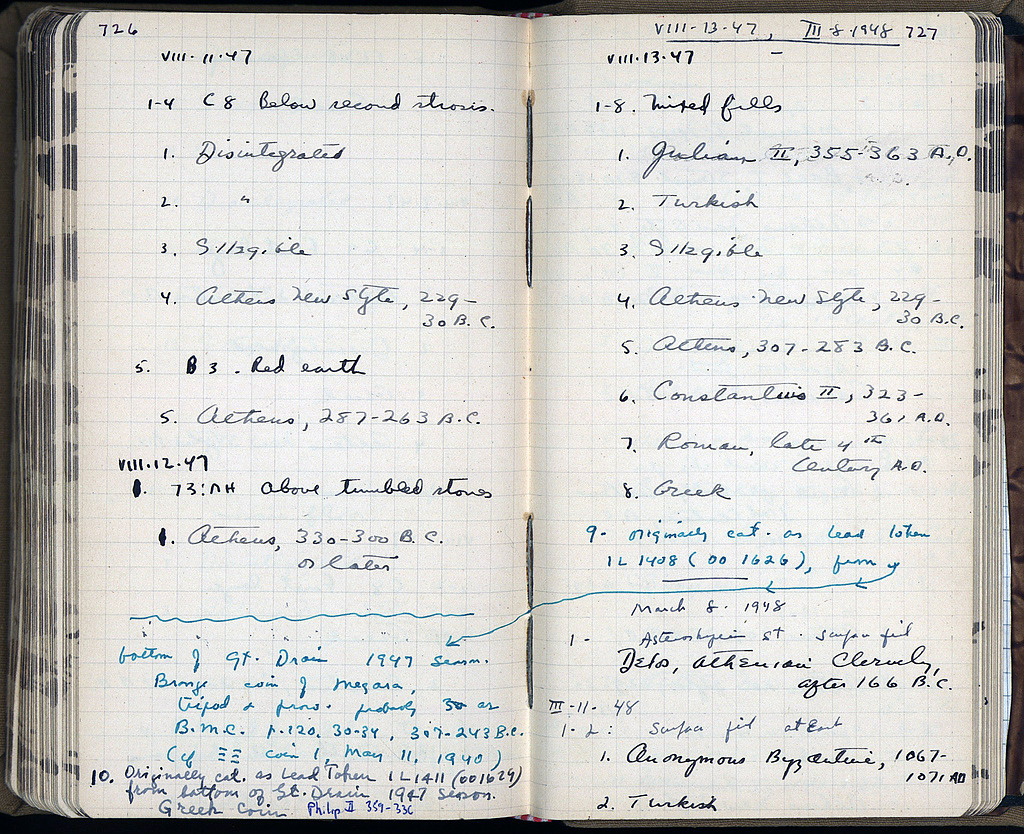 726
VIII·11·47
1-4 C 8 Below second strosis.
1. Disintegrated
2. "
3. Illegible
4. Athens New Style, 229-
30 B.C.
5. B 3. Red earth
5. Athens, 287-263 B.C.
VIII·12·47
1. 73:ΛΗ above tumbled stones
1. Athens, 330-300 B.C.
or later
bottom of Gt. Drain 1947 season.
Bronze coin of Megara,
tripod & prow. probably as
B.M.C. p.120, 30-34, 307-243 B.C.
(cf ΞΞ coin 1, May 11, 1940)
10. Originally cat. as Lead Token IL1411 (001629)
from bottom of Gt. Drain 1947 season.
Greek Coin. Philip II 359-336
VIII-13-47, III-8-1948 727
VIII·13·47
1-8. Mixed fills
1. Julian II, 355-363 A.D.
2. Turkish
3. Illegible
4. Athens New Style, 229-
30 B.C.
5. Athens, 307-283 B.C.
6. Constantius II, 323-
361 A.D.
7. Roman, late 4th
Century A.D.
8. Greek
9- originally cat. as lead token
IL 1408 (OO 1626), from
March 8. 1948
1- St. surface fill
Delos, Athenian Cleruchy,
after 166 B.C.
III-11-48
1-2: Surface fill at East
1. Anonymous Byzantine, 1067-
1071 AD
2. Turkish